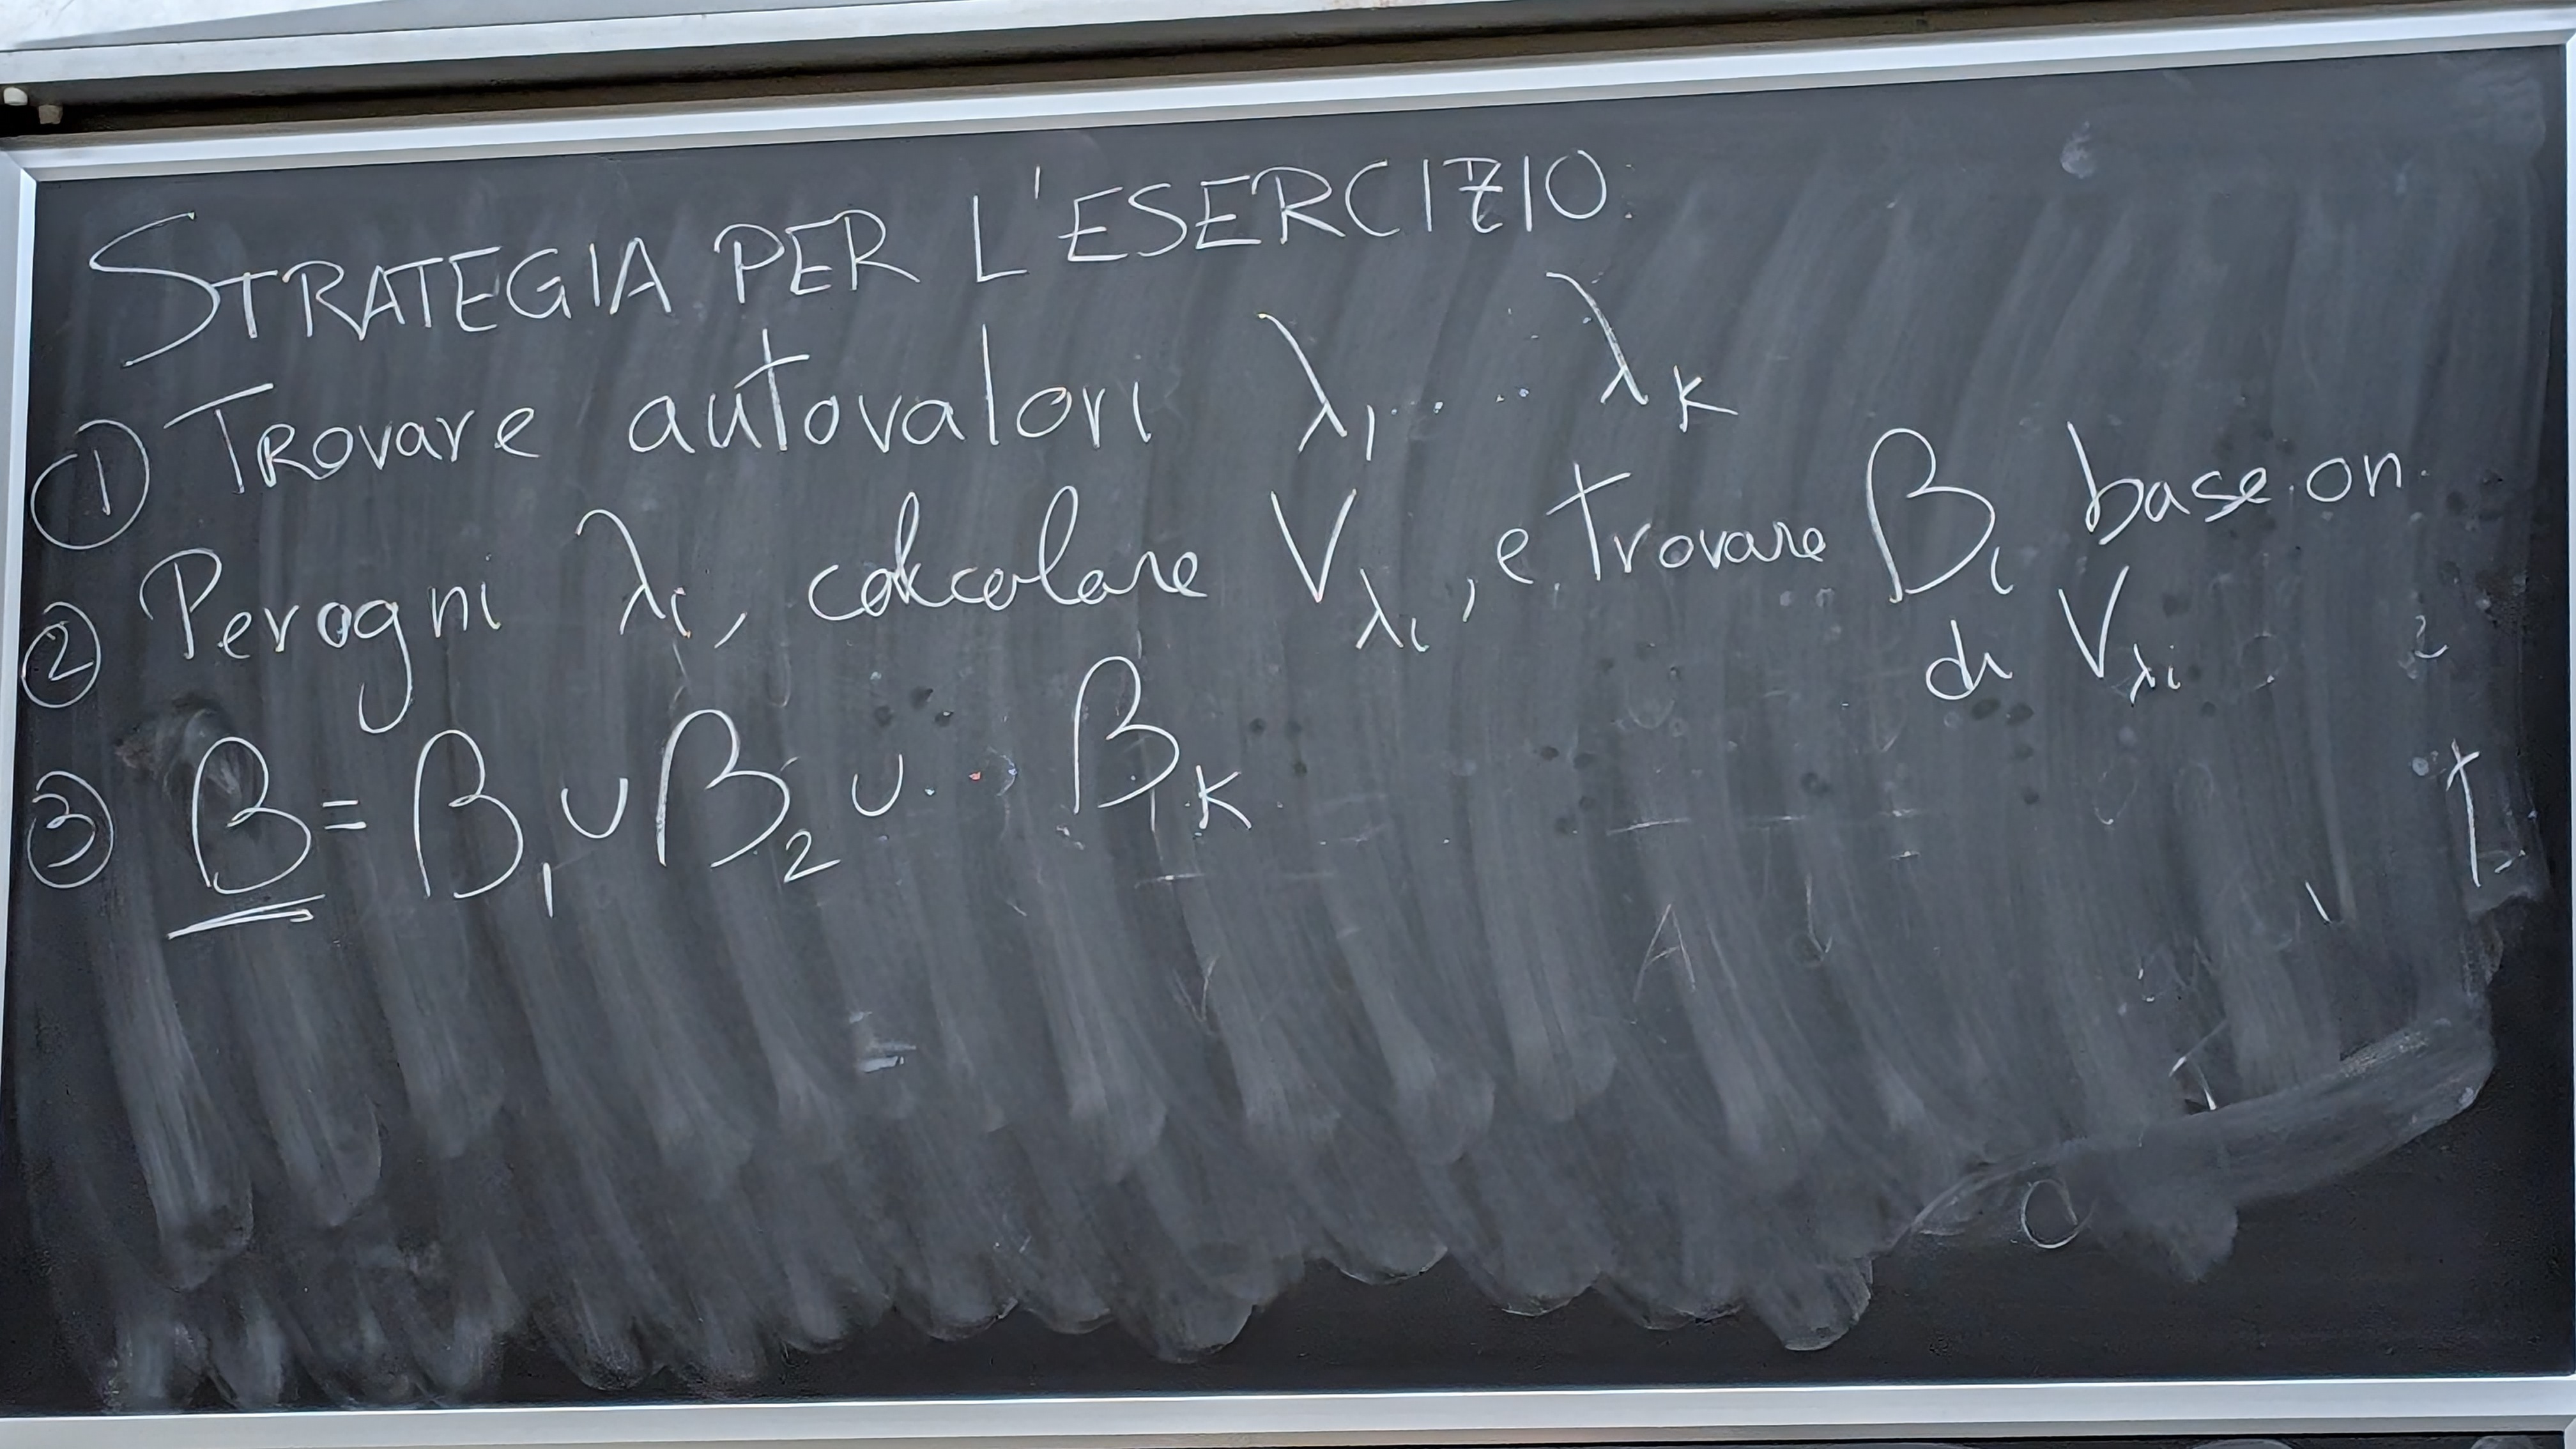 STRATEGIA PER L'ESERCIZIO:
① Trovare autovalori λ₁.... λₖ
② Per ogni λᵢ, calcolare V_λᵢ, e trovare Bᵢ base on.
di V_λᵢ
③ B = B₁ ∪ B₂ ∪ ... Bₖ